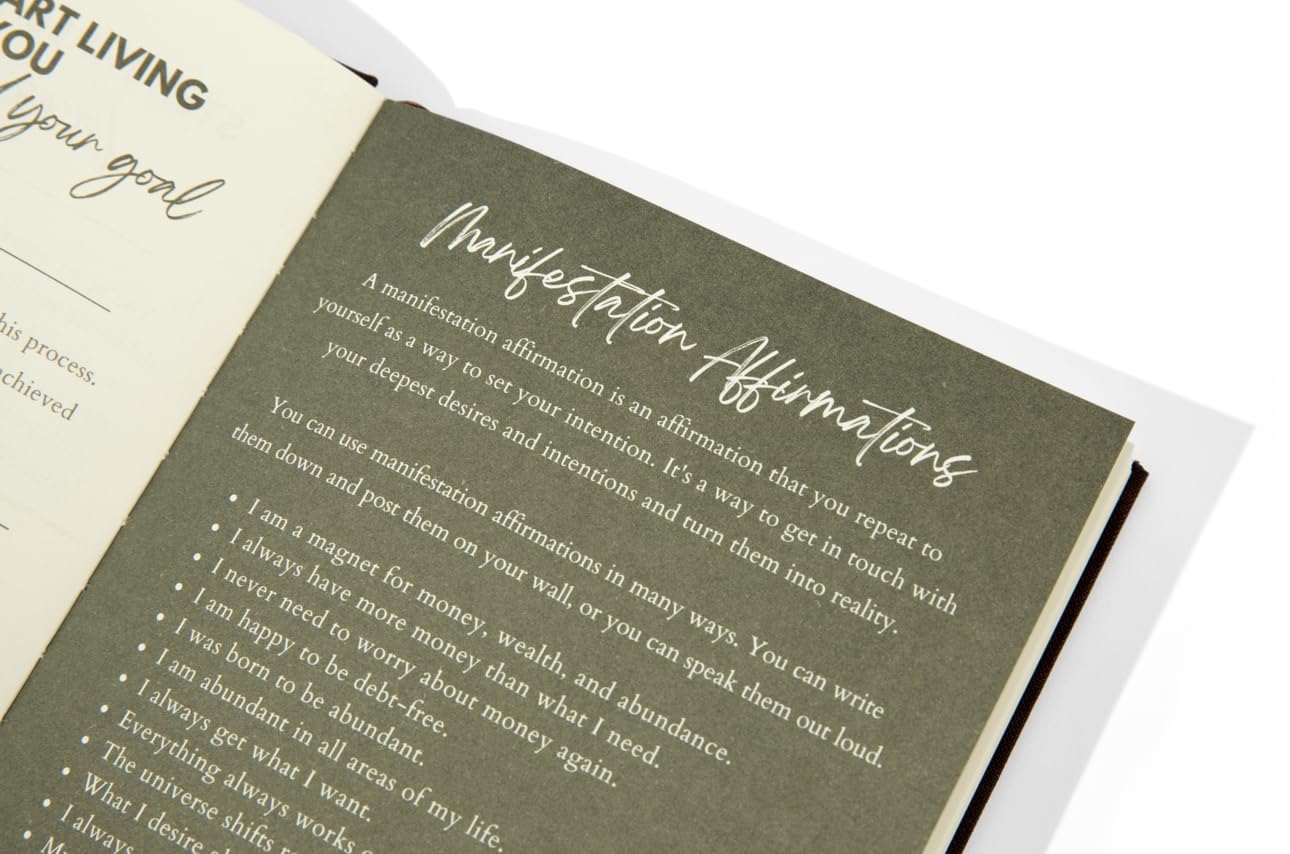 ART LIVING
YOU
your goal
his process.
achieved
Manifestation Affirmations
A manifestation affirmation is an affirmation that you repeat to
yourself as a way to set your intention. It's a way to get in touch with
your deepest desires and intentions and turn them into reality.
You can use manifestation affirmations in many ways. You can write
them down and post them on your wall, or you can speak them out loud.
• I am a magnet for money, wealth, and abundance.
• I always have more money than what I need.
• I never need to worry about money again.
• I am happy to be debt-free.
• I was born to be abundant.
• I am abundant in all areas of my life.
• I always get what I want.
• Everything always works
• The universe shifts
• What I desire
• I always
•